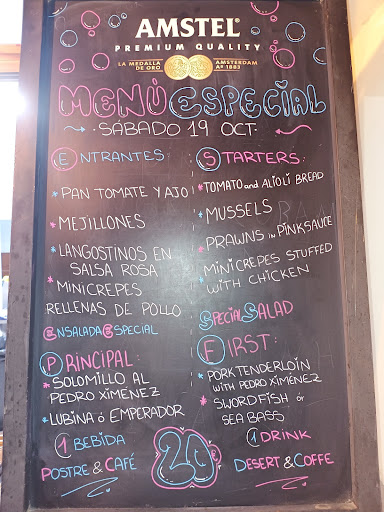 AMSTEL
PREMIUM QUALITY
LA MEDALLA DE ORO
AMSTERDAM Aº 1883
MENÚ ESPECIAL
· SÁBADO 19 OCT ·
ENTRANTES
* PAN TOMATE Y AJO
* MEJILLONES
* LANGOSTINOS EN
SALSA ROSA
* MINICREPES
RELLENAS DE POLLO
ENSALADA ESPECIAL
PRINCIPAL
* SOLOMILLO AL
PEDRO XIMÉNEZ
* LUBINA ó EMPERADOR
1 BEBÍDA
POSTRE & CAFÉ
STARTERS:
* TOMATO and ALIOLI BREAD
* MUSSELS
* PRAWNS in PINKSAUCE
* MINICREPES STUFFED
WITH CHICKEN
SPECIAL SALAD
FIRST:
* PORK TENDERLOIN
WITH PEDRO XIMÉNEZ
* SWORDFISH or
SEA BASS
1 DRINK
DESERT & COFFE
20€